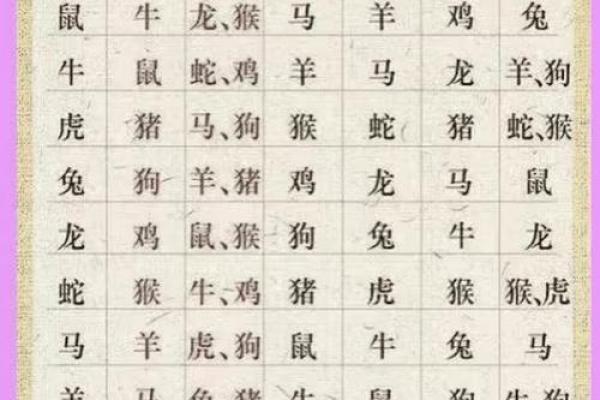 鼠 牛 龙、猴 马 羊 鸡 兔
牛 鼠 蛇、鸡 羊 马 龙 羊、狗
虎 猪 马、狗 猴 蛇 猪 蛇、猴
兔 狗 羊、猪 鸡 龙 马 鼠
龙 鸡 鼠、猴 狗 兔 牛 龙
蛇 猴 牛、鸡 猪 虎 猴 猴、虎
马 羊 虎、狗 鼠 牛 兔 马
羊 马 兔、猪 牛 鼠 狗 牛、狗